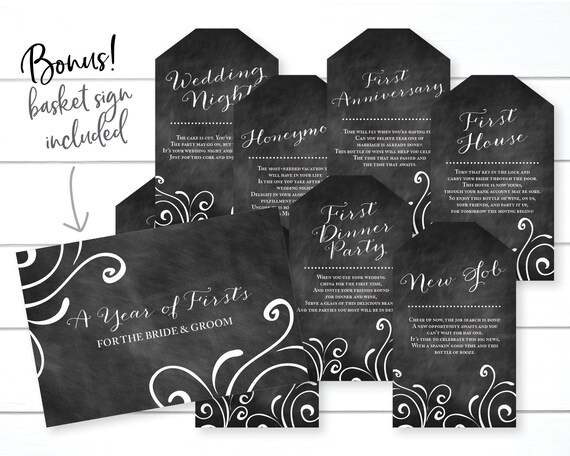 Bonus!
basket sign
included
Wedding
Night
THE CAKE IS CUT. YOU'VE
THE PARTY MAY GO ON, BUT
IT'S YOUR WEDDING NIGHT AND
JUST POP THIS CORK AND
Honeymo
THE MOST-NEEDED VACATION
WILL HAVE IN YOUR LIFE
IS THE ONE YOU TAKE AFTER
WEDDING
DELIGHT IN YOUR
First
Anniversary
TIME WILL FLY WHEN YOU'RE HAVING
CAN YOU BELIEVE YEAR ONE OF
MARRIAGE IS ALREADY DONE?
THIS BOTTLE OF WINE WILL HELP YOU
THE TIME THAT HAS PASSED AND
THE TIME THAT AWAITS.
First
House
TURN THAT KEY IN THE LOCK AND
CARRY YOUR BRIDE THROUGH THE DOOR.
THIS HOUSE IS NOW YOURS,
THOUGH YOUR BANK ACCOUNT MAY BE SORE.
SO ENJOY THIS BOTTLE OF WINE, ON US,
YOUR FRIENDS, AND PARTY IT UP,
FOR TOMORROW THE MOVING BEGINS!
First
Dinner
Party
WHEN YOU USE YOUR WEDDING
CHINA FOR THE FIRST TIME,
AND INVITE YOUR FRIENDS ROUND
FOR DINNER AND WINE,
SERVE A GLASS OF THIS DELICIOUS
AND THE PARTIES YOU HOST WILL BE IN
New Job
CHEER UP NOW, THE JOB SEARCH IS DONE!
A NEW OPPORTUNITY AWAITS AND YOU
CAN'T WAIT FOR DAY ONE.
IT'S TIME TO CELEBRATE THIS BIG NEWS,
WITH A SPANKIN' GOOD TIME AND THIS
BOTTLE OF BOOZE.
A Year of Firsts
FOR THE BRIDE & GROOM